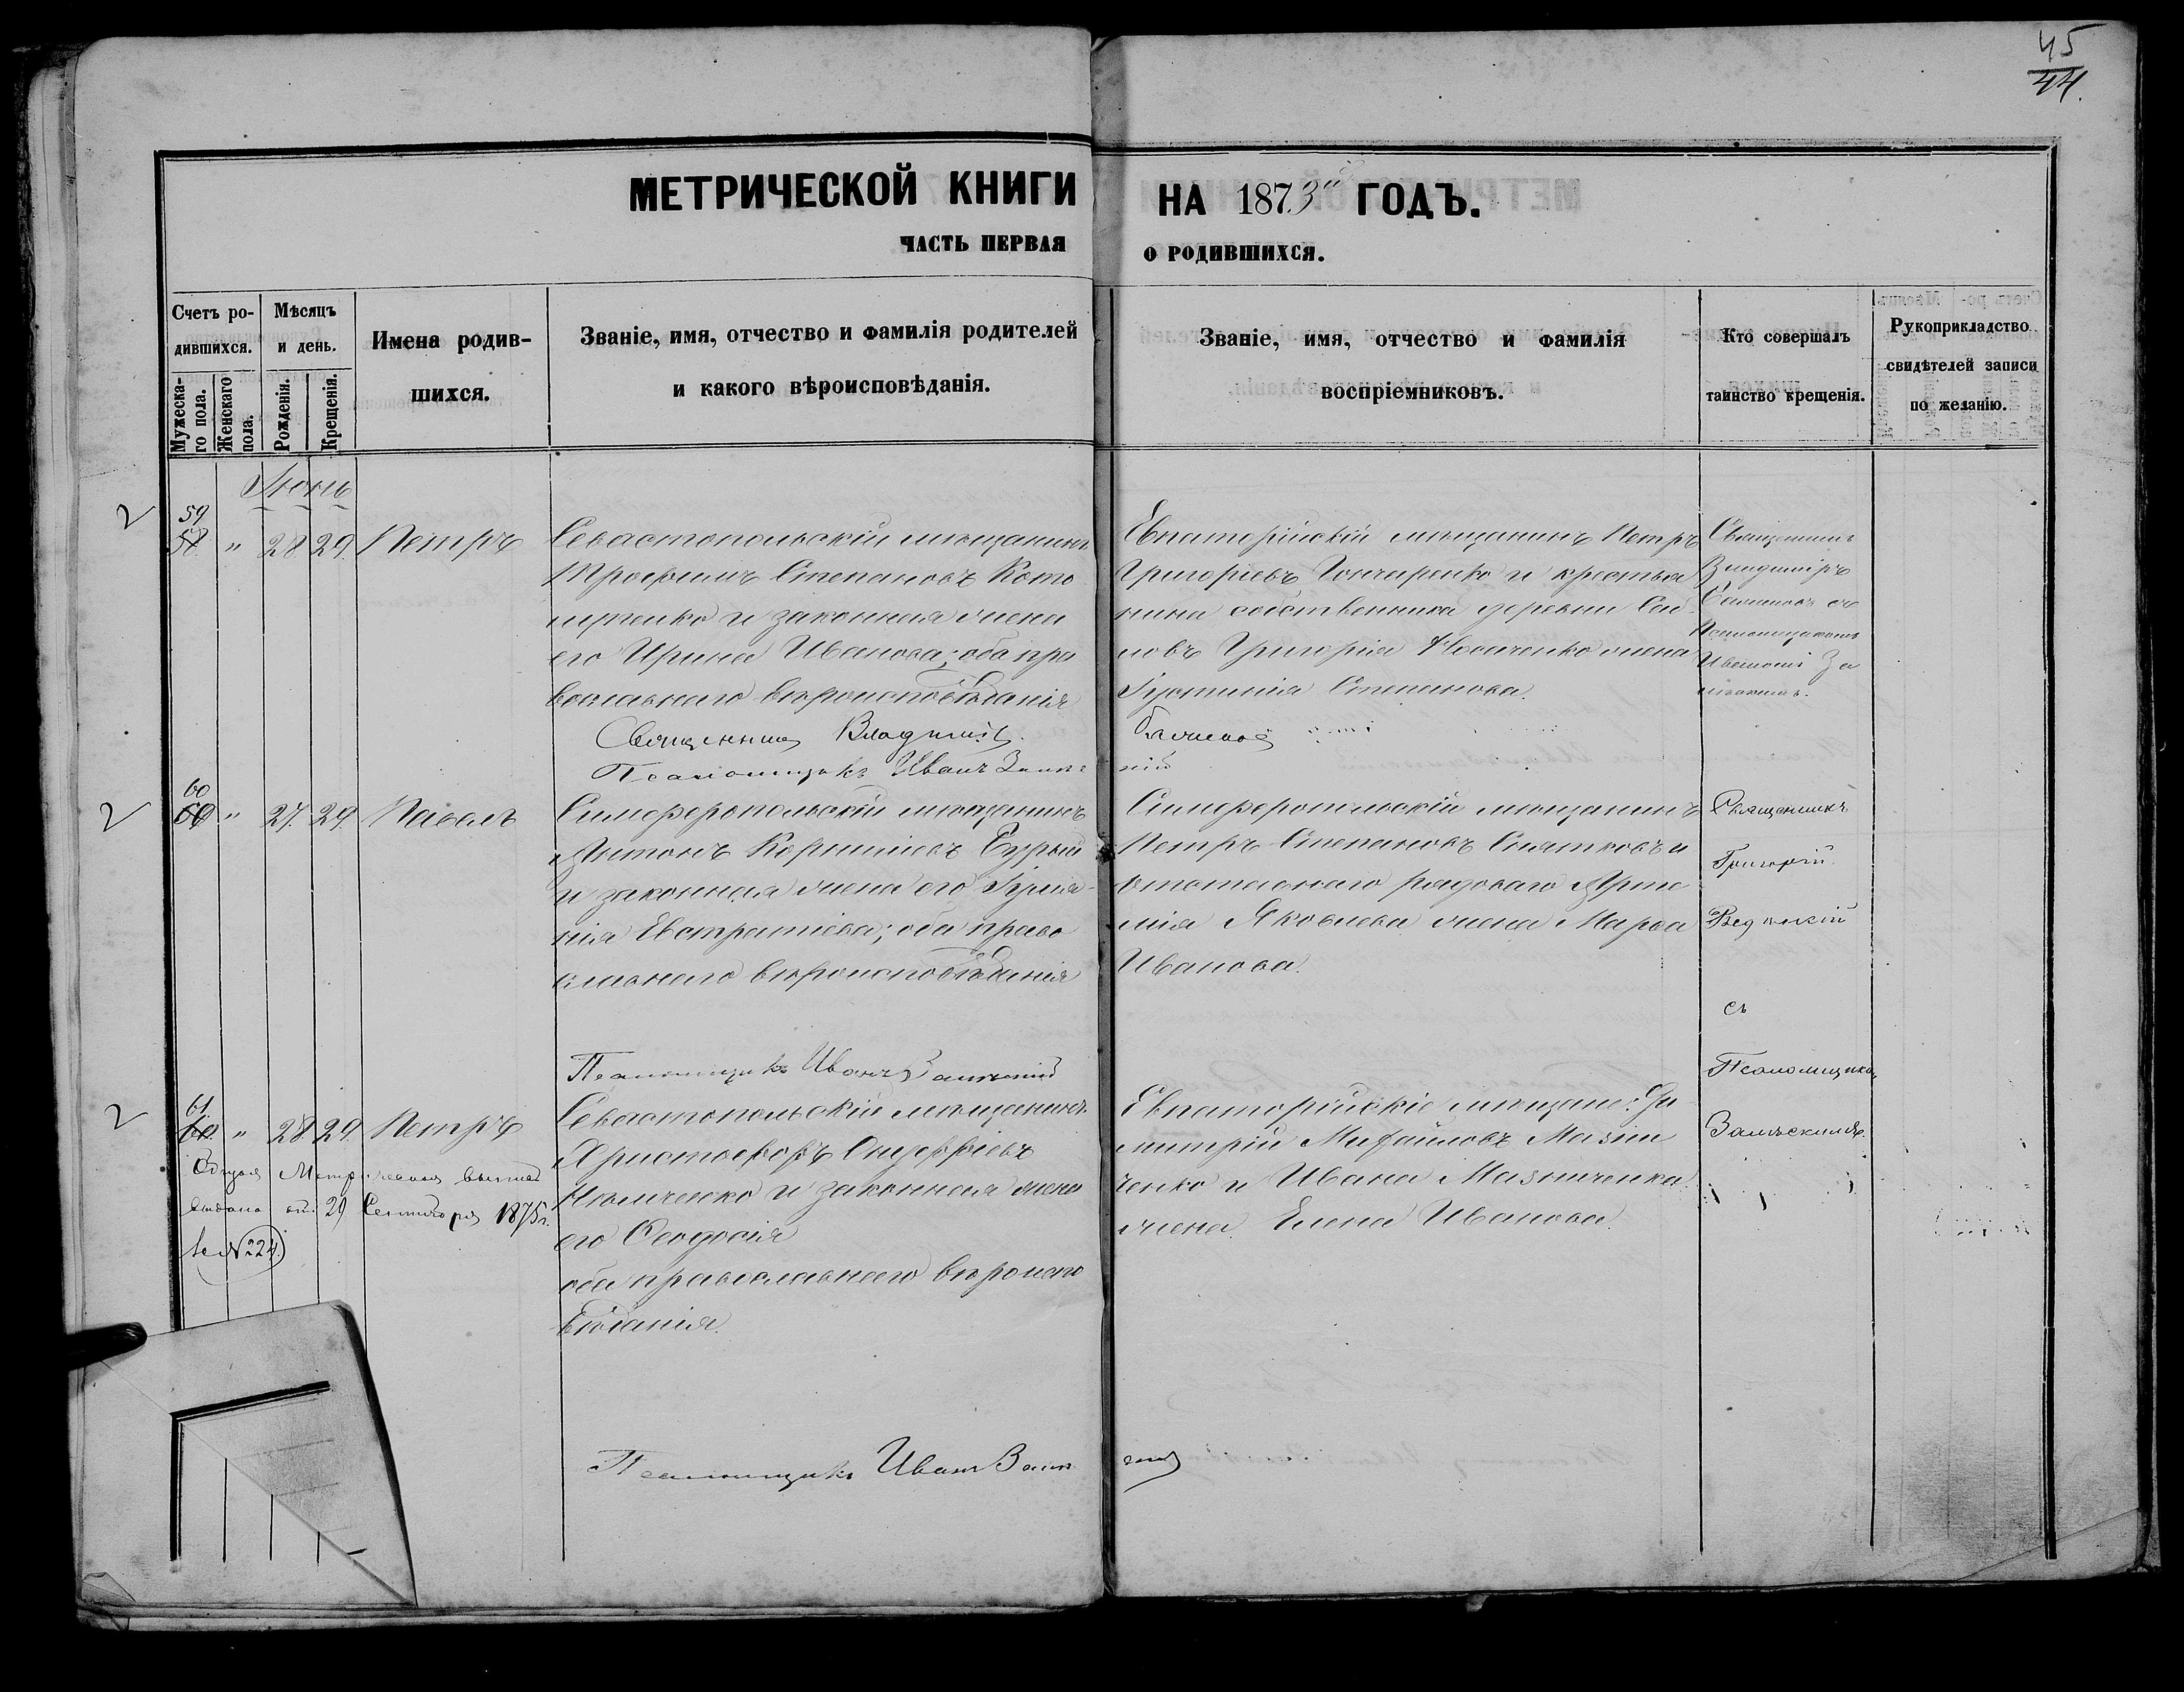 45
44.
МЕТРИЧЕСКОЙ КНИГИ НА 1873й ГОДЪ.
ЧАСТЬ ПЕРВАЯ О РОДИВШИХСЯ.
Счетъ ро-
дившихся.
Мужеска-
го пола.
Женскаго
пола.
Мѣсяцъ
и день.
Рожденія.
Крещенія.
Имена родив-
шихся.
Званіе, имя, отчество и фамилія родителей
и какого вѣроисповѣданія.
Званіе, имя, отчество и фамилія
воспріемниковъ.
Кто совершалъ
таинство крещенія.
Рукоприкладство
свидѣтелей записи
по желанію.
Іюнь
59
58 " 28 29. Петръ
Севастопольскій мѣщанинъ
Трофимъ Степановъ
и законная жена
его Ирина Иванова; оба пра
вославнаго вѣроисповѣданія
Священникъ Владиміръ
Псаломщикъ Иванъ
Евпаторійскій мѣщанинъ Петръ
Григорьевъ Гончаренко и крестья
нина собственника деревни Са
Григорія Носаченко жена
Іустинія Степанова.
Священникъ
Владиміръ
съ
Псаломщикомъ
Иваномъ За
60
60 " 27. 29. Павелъ
Симферопольскій мѣщанинъ
Антонъ Корниліевъ
и законная жена его Іулiа-
нія Евстратіева; оба право
славнаго вѣроисповѣданія
Псаломщикъ Иванъ
Симферопольскій мѣщанинъ
Петръ Степановъ Снятковъ и
отставнаго рядоваго Арте
мія Яковлева жена Марѳа
Иванова.
Священникъ
Григорій
съ
Псаломщикомъ
61
60. " 28. 29. Петръ
выдана отъ 29 Сентября 1875г.
за №224.
Севастопольскій мѣщанинъ
Христофоръ Онуфріевъ
и законная жена
его Ѳеодосія
оба православнаго вѣроиспо
вѣданія.
Псаломщикъ Иванъ
Евпаторійскіе мѣщане: Ди
митрій Михайловъ Мазни
ченко и Ивана Мазниченка
жена Елена Иванова.